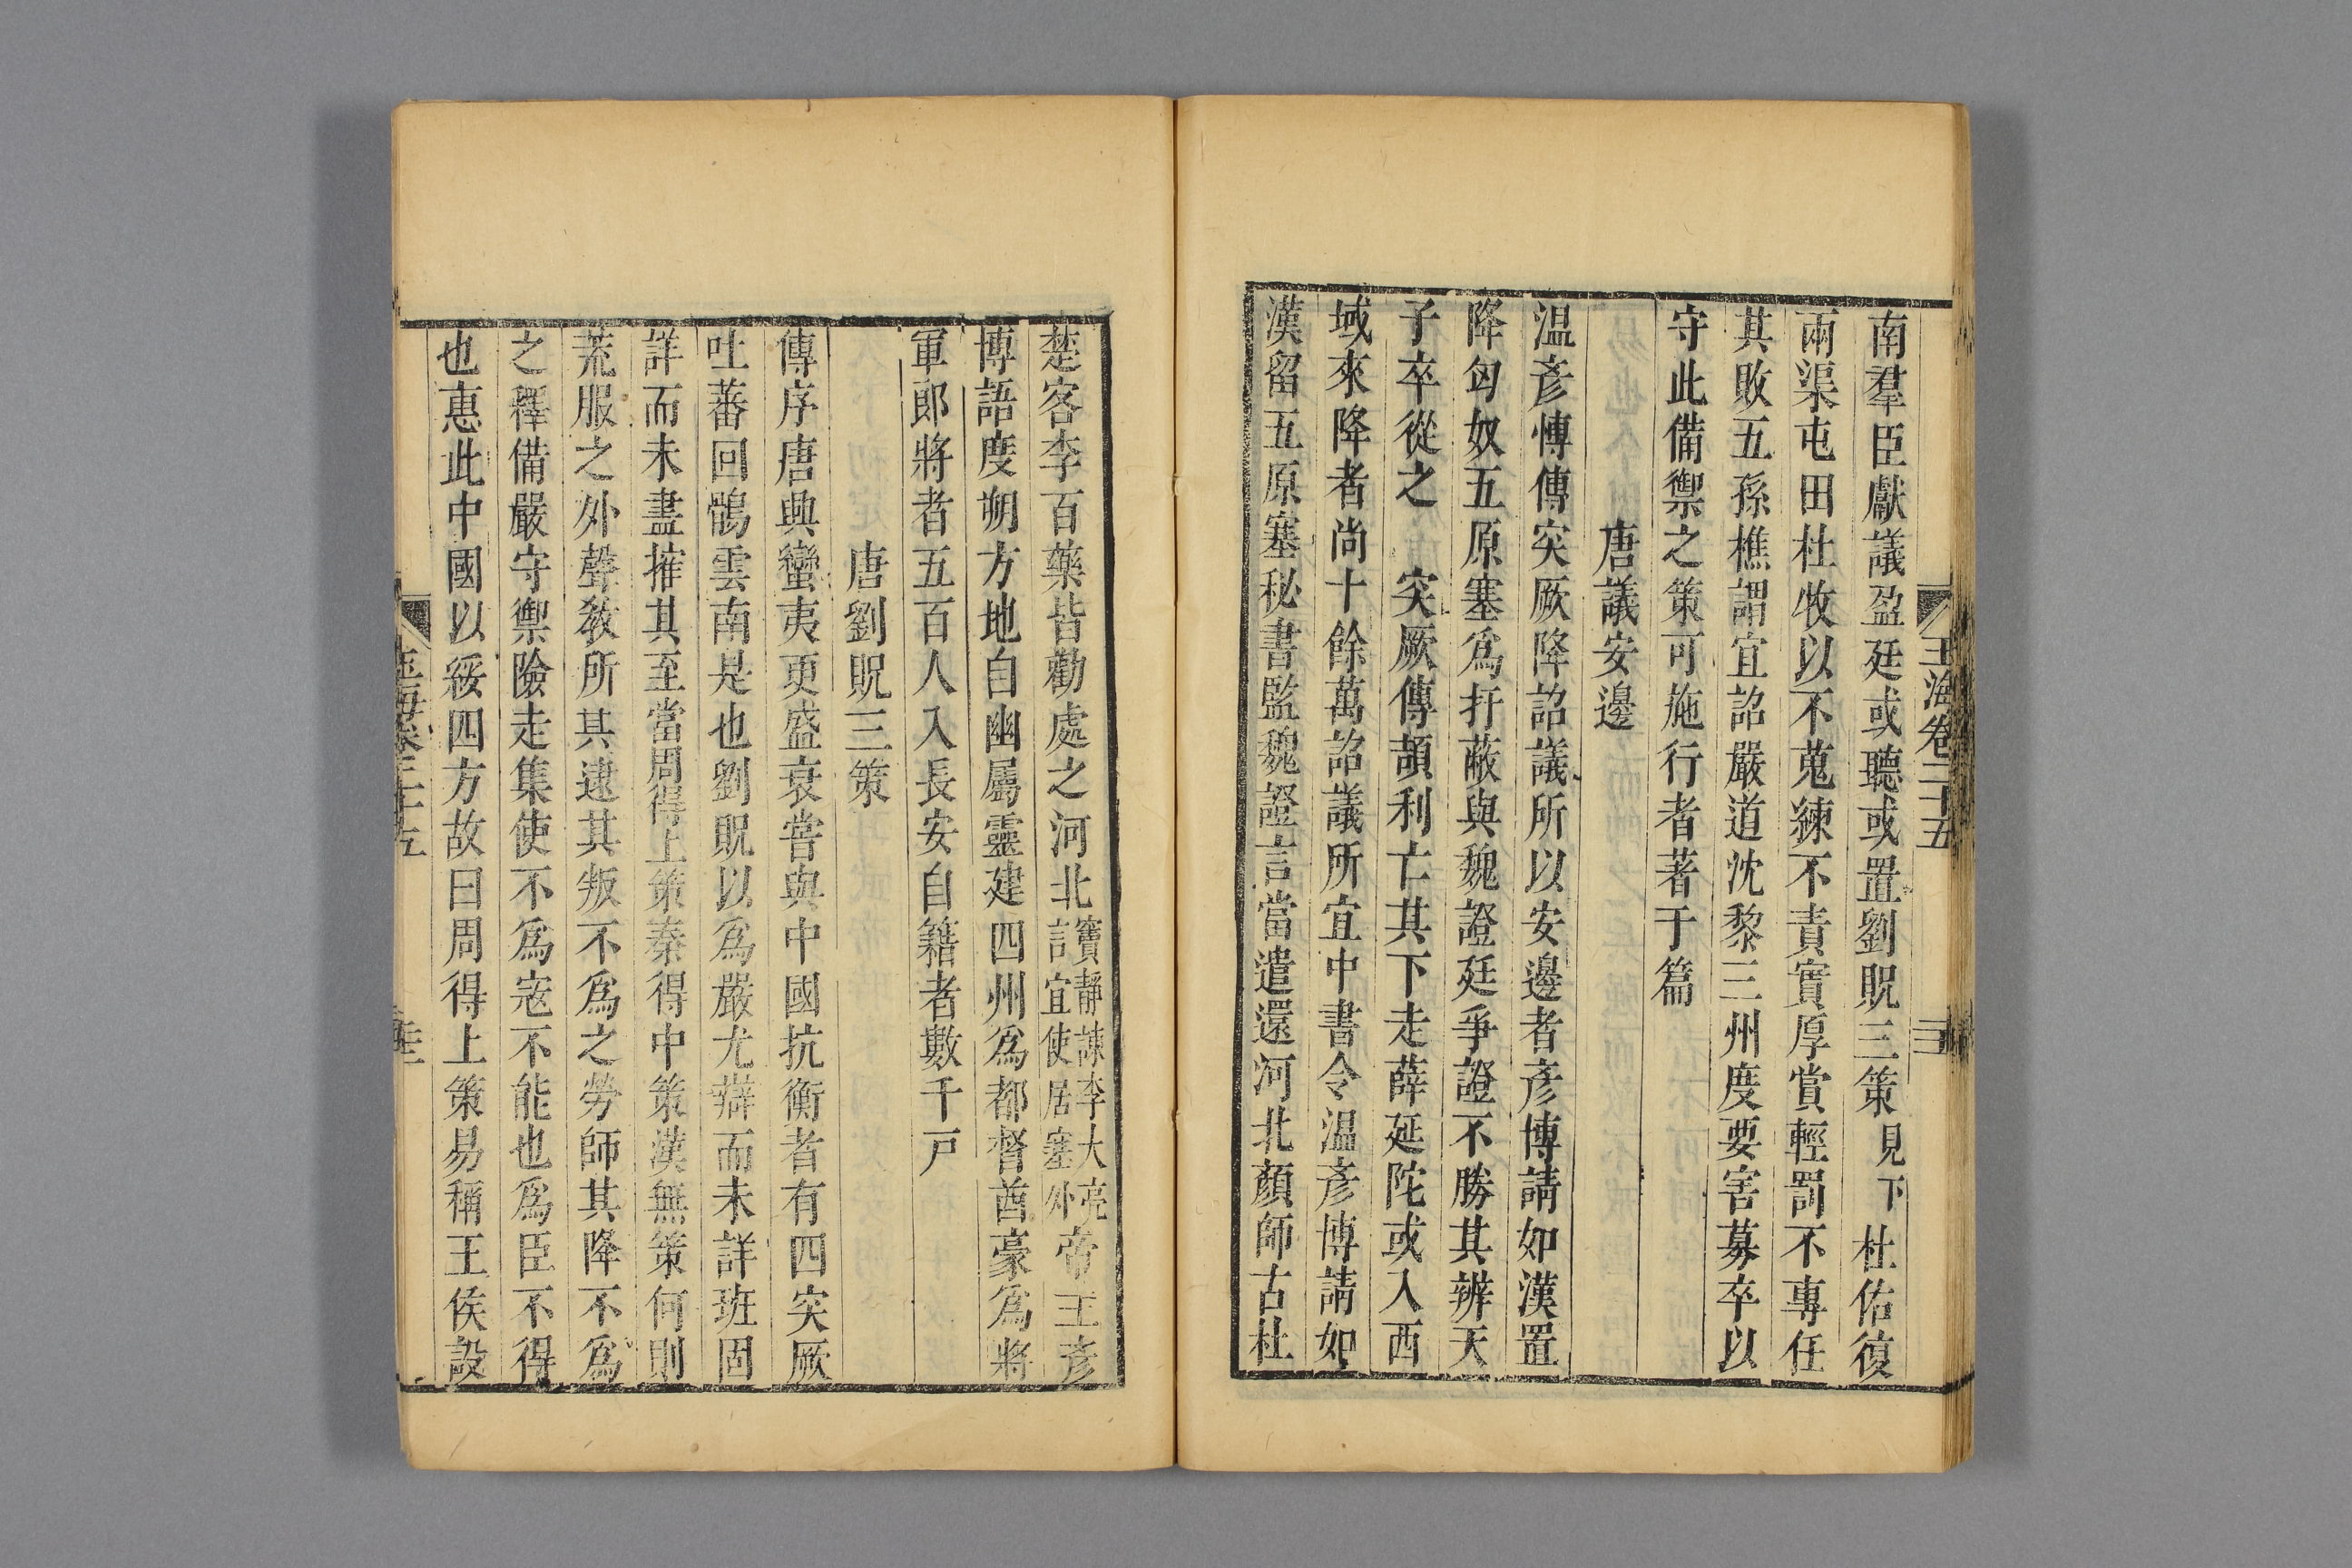 玉海卷二十五
南羣臣獻議盈廷或聽或置劉貺三策見下杜佑復
兩渠屯田杜牧以不蒐練不責實厚賞輕罰不專任
其敗五孫樵謂宜詔嚴道沈黎三州度要害募卒以
守此備禦之策可施行者著于篇
唐議安邊
温彥愽傳突厥降詔議所以安邊者彥博請如漢置
降匈奴五原塞爲扞蔽與魏證廷爭證不勝其辨天
子卒從之 突厥傳頡利亡其下走薛延陀或入西
域來降者尚十餘萬詔議所宜中書令温彥博請如
漢留五原塞秘書監魏證言當遣還河北顏師古杜
楚客李百藥皆勸處之河北竇靜諫李大亮言宜使居塞外帝主彥
博語度朔方地自幽屬靈建四州爲都督酋豪爲將
軍郎將者五百人入長安自籍者數千戸
唐劉貺三策
傳序唐興蠻夷更盛衰嘗與中國抗衡者有四突厥
吐蕃回鶻雲南是也劉貺以爲嚴尤辯而未詳班固
詳而未盡搉其至當周得上策秦得中策漢無策何則
荒服之外聲教所其逮其叛不爲之勞師其降不爲
之釋備嚴守禦險走集使不爲寇不能也爲臣不得
也惠此中國以綏四方故曰周得上策易稱王侯設
玉海卷二十五